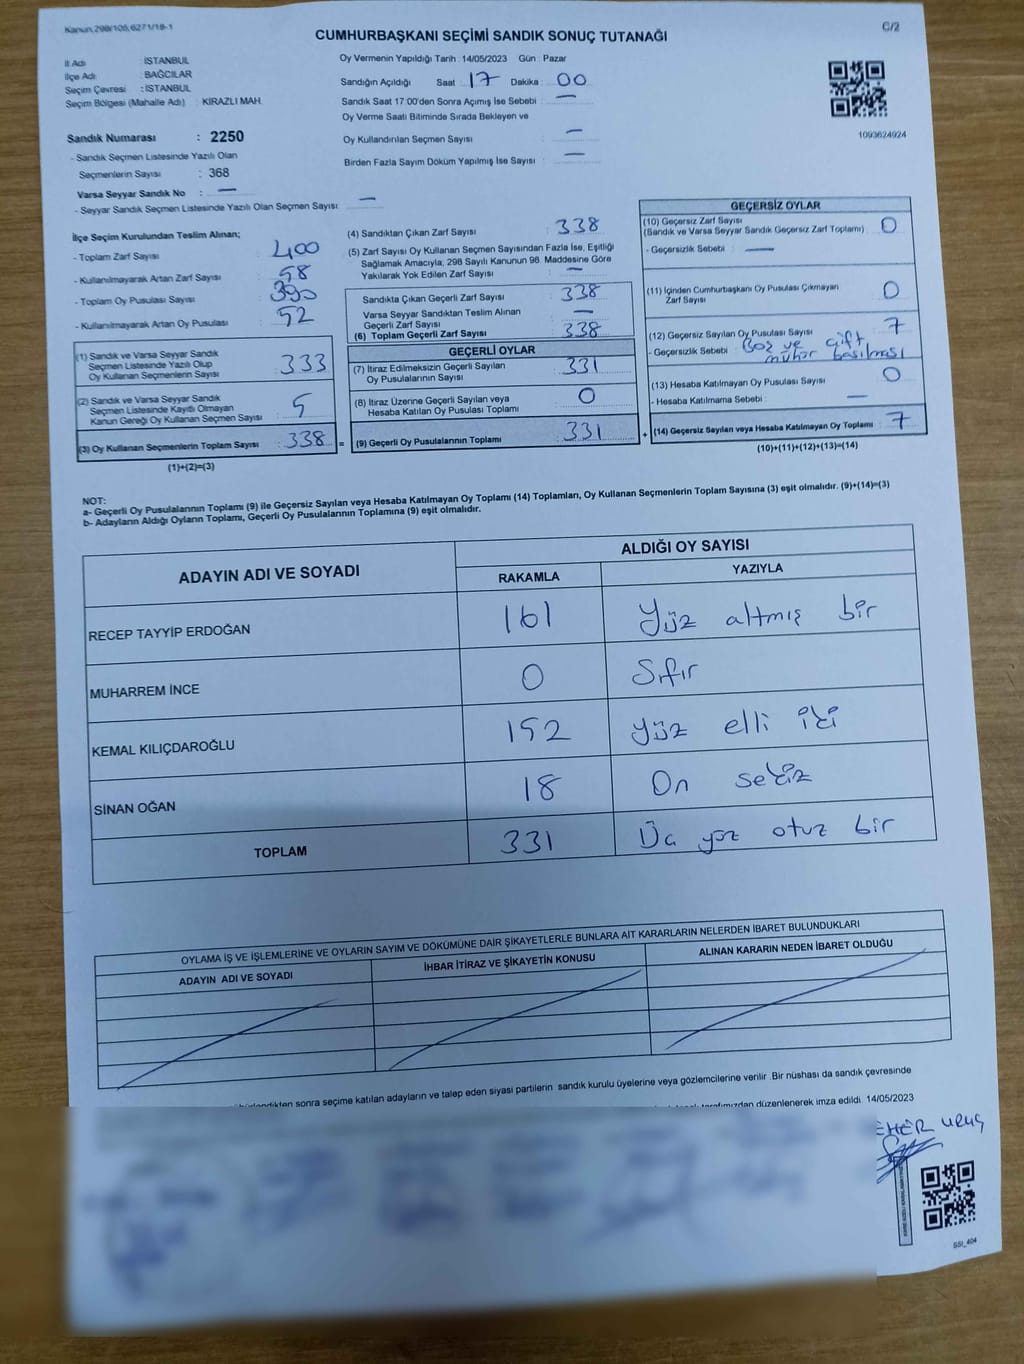 Kanun,298/105,6271/18-1
C/2
CUMHURBAŞKANI SEÇİMİ SANDIK SONUÇ TUTANAĞI
İl Adı : İSTANBUL
İlçe Adı : BAĞCILAR
Seçim Çevresi : İSTANBUL
Seçim Bölgesi (Mahalle Adı) : KİRAZLI MAH.
Sandık Numarası : 2250
- Sandık Seçmen Listesinde Yazılı Olan
Seçmenlerin Sayısı : 368
Varsa Seyyar Sandık No : —
- Seyyar Sandık Seçmen Listesinde Yazılı Olan Seçmen Sayısı: —
Oy Vermenin Yapıldığı Tarih : 14/05/2023 Gün : Pazar
Sandığın Açıldığı Saat : 17 Dakika : 00
Sandık Saat 17.00'den Sonra Açımış İse Sebebi : —
Oy Verme Saati Bitiminde Sırada Bekleyen ve
Oy Kullandırılan Seçmen Sayısı : —
Birden Fazla Sayım Döküm Yapılmış İse Sayısı : —
1093624924
İlçe Seçim Kurulundan Teslim Alınan;
- Toplam Zarf Sayısı : 400
- Kullanılmayarak Artan Zarf Sayısı : 58
- Toplam Oy Pusulası Sayısı : 390
- Kullanılmayarak Artan Oy Pusulası : 52
(1) Sandık ve Varsa Seyyar Sandık
Seçmen Listesinde Yazılı Olup
Oy Kullanan Seçmenlerin Sayısı : 333
(2) Sandık ve Varsa Seyyar Sandık
Seçmen Listesinde Kayıtlı Olmayan
Kanun Gereği Oy Kullanan Seçmen Sayısı : 5
(3) Oy Kullanan Seçmenlerin Toplam Sayısı : 338 =
(1)+(2)=(3)
(4) Sandıktan Çıkan Zarf Sayısı : 338
(5) Zarf Sayısı Oy Kullanan Seçmen Sayısından Fazla İse, Eşitliği
Sağlamak Amacıyla, 298 Sayılı Kanunun 98. Maddesine Göre
Yakılarak Yok Edilen Zarf Sayısı : —
Sandıkta Çıkan Geçerli Zarf Sayısı : 338
Varsa Seyyar Sandıktan Teslim Alınan
Geçerli Zarf Sayısı : —
(6) Toplam Geçerli Zarf Sayısı : 338
GEÇERLİ OYLAR
(7) İtiraz Edilmeksizin Geçerli Sayılan
Oy Pusulalarının Sayısı : 331
(8) İtiraz Üzerine Geçerli Sayılan veya
Hesaba Katılan Oy Pusulası Toplamı : 0
(9) Geçerli Oy Pusulalarının Toplamı : 331 +
GEÇERSİZ OYLAR
(10) Geçersiz Zarf Sayısı
(Sandık ve Varsa Seyyar Sandık Geçersiz Zarf Toplamı) : 0
- Geçersizlik Sebebi : —
(11) İçinden Cumhurbaşkanı Oy Pusulası Çıkmayan
Zarf Sayısı : 0
(12) Geçersiz Sayılan Oy Pusulası Sayısı : 7
- Geçersizlik Sebebi : Boz ve çift
mühür basılması
(13) Hesaba Katılmayan Oy Pusulası Sayısı : 0
- Hesaba Katılmama Sebebi : —
(14) Geçersiz Sayılan veya Hesaba Katılmayan Oy Toplamı : 7
(10)+(11)+(12)+(13)=(14)
NOT:
a- Geçerli Oy Pusulalarının Toplamı (9) ile Geçersiz Sayılan veya Hesaba Katılmayan Oy Toplamı (14) Toplamları, Oy Kullanan Seçmenlerin Toplam Sayısına (3) eşit olmalıdır. (9)+(14)=(3)
b- Adayların Aldığı Oyların Toplamı, Geçerli Oy Pusulalarının Toplamına (9) eşit olmalıdır.
ADAYIN ADI VE SOYADI
ALDIĞI OY SAYISI
RAKAMLA YAZIYLA
RECEP TAYYİP ERDOĞAN 161 Yüz altmış bir
MUHARREM İNCE 0 Sıfır
KEMAL KILIÇDAROĞLU 152 yüz elli iki
SİNAN OĞAN 18 On sekiz
TOPLAM 331 Üç yüz otuz bir
OYLAMA İŞ VE İŞLEMLERİNE VE OYLARIN SAYIM VE DÖKÜMÜNE DAİR ŞİKAYETLERLE BUNLARA AİT KARARLARIN NELERDEN İBARET BULUNDUKLARI
ADAYIN ADI VE SOYADI İHBAR İTİRAZ VE ŞİKAYETİN KONUSU ALINAN KARARIN NEDEN İBARET OLDUĞU
sonra seçime katılan adayların ve talep eden siyasi partilerin sandık kurulu üyelerine veya gözlemcilerine verilir .Bir nüshası da sandık çevresinde
düzenlenerek imza edildi. 14/05/2023
URUÇ
SSİ_404